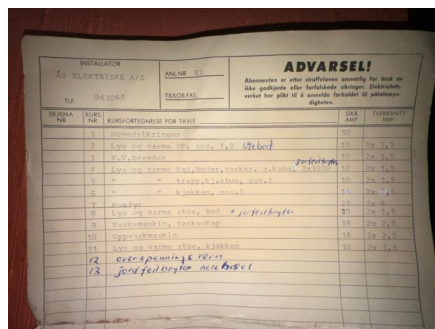 INSTALLATØR
ÅS ELEKTRISKE A/S
TLF. 941065
ANL.NR
TILKOB.FAS.
ADVARSEL!
Abonnenten er etter straffeloven ansvarlig for bruk av
ikke godkjente eller forfalskede sikringer. Elektrisitets-
verket har plikt til å anmelde forholdet til påtalemyn-
digheten.
SKJEMA NR KURS NR KURSFORTEGNELSE FOR TAVLE SIKR. AMP. TVERRSNITT MM²
1 Hovedsikringer 50
2 Lys og varme VF, sov. 1,2 Utebod 10 2x 1,5
3 V.V.bereder 10 2x 1,5
jordfeilbryter
4 Lys og varme bad,boder,vasker, v.kabel 2x300W 10 2x 1,5
5 " " trapp,kj.stue, sov.2 10 2x 1,5
6 " " kjøkken, sov.3 2x 1,5
7 Komfyr 25 2x 6
8 Lys og varme stue, bad + jordfeilbryter 10 2x 1,5
9 Vaskemaskin, tørkeskap 16 2x 2,5
10 Oppvaskmaskin 16 2x 2,5
11 Lys og varme stue, kjøkken 10 2x 1,5
12 overspennings vern
13 jordfeilbryter hele huset